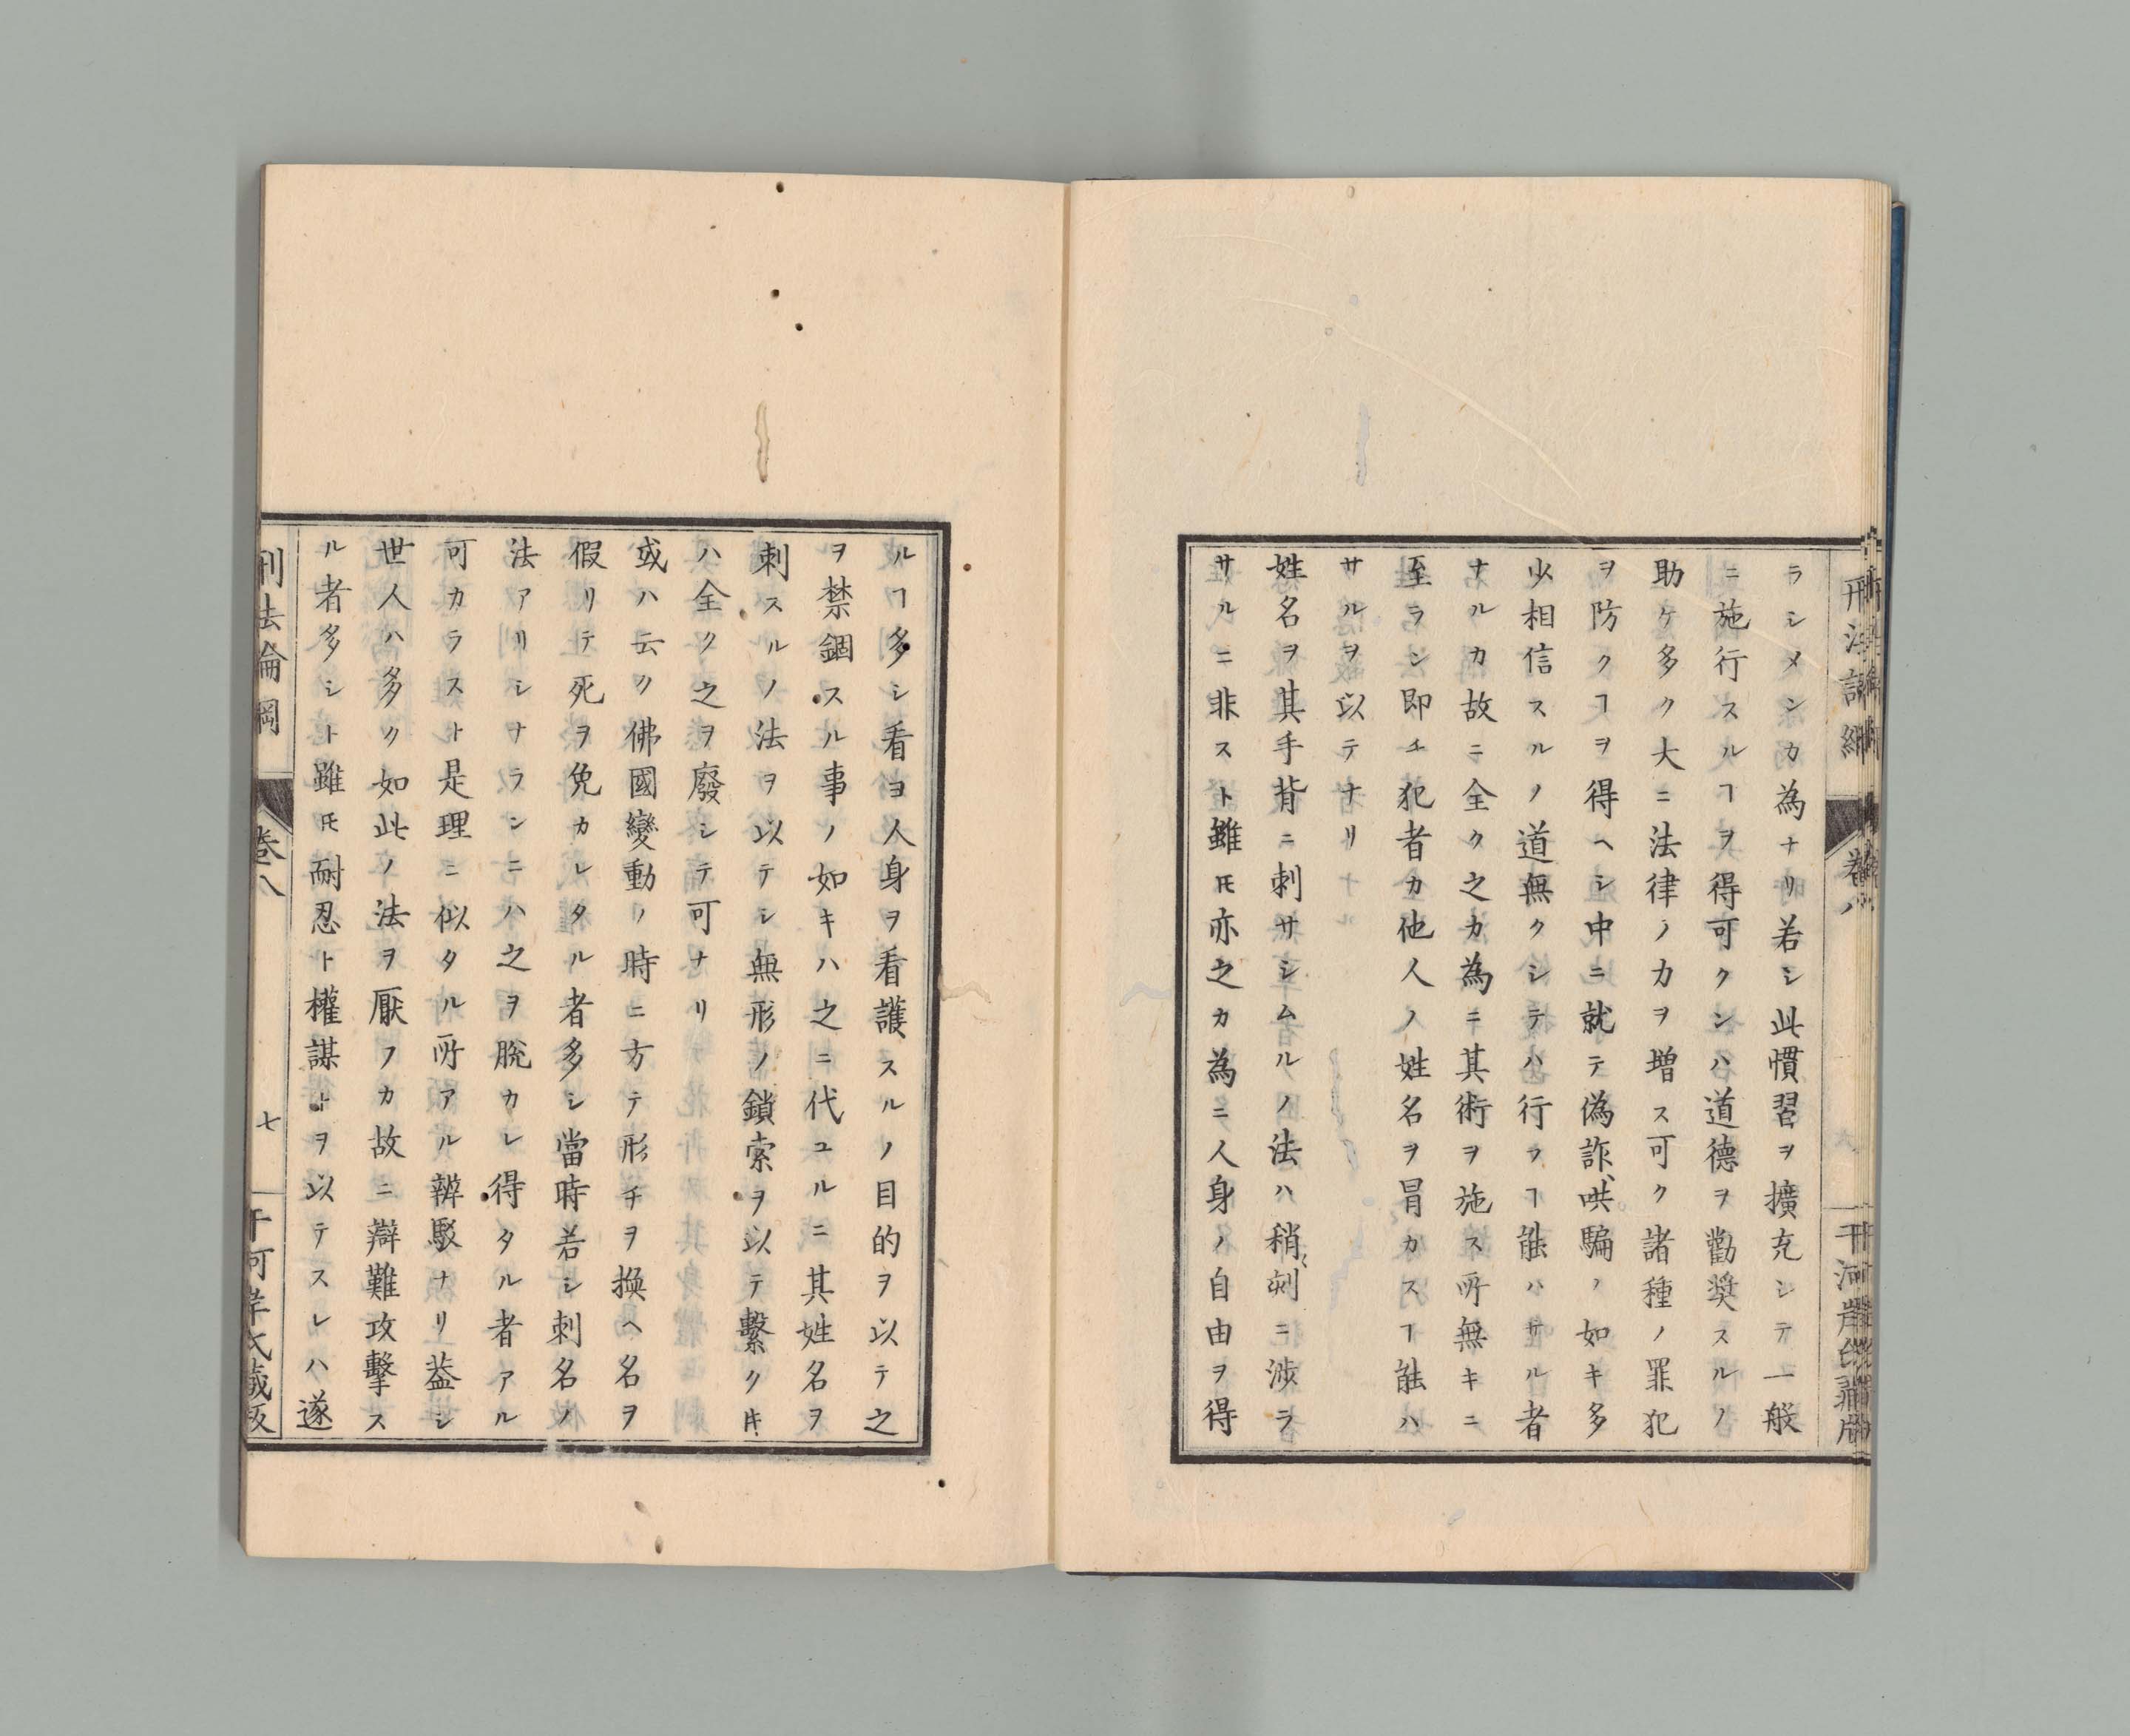 ラシメンカ為ナリ若シ此慣習ヲ擴充シテ一般
ニ施行スルヿヲ得可クンハ道德ヲ勸奨スルノ
助ケ多ク大ニ法律ノ力ヲ増ス可ク諸種ノ罪犯
ヲ防クヿヲ得ヘシ中ニ就テ偽詐、哄騙ノ如キ多
少相信スルノ道無クシテハ行フヿ能ハサル者
ナルカ故ニ全ク之カ為ニ其術ヲ施ス所無キニ
至ラン即チ犯者カ他人ノ姓名ヲ冒カスヿ能ハ
サルヲ以テナリ
姓名ヲ其手背ニ刺サシムルノ法ハ稍〻刻ニ渉ラ
サルニ非スト雖𪜈亦之カ為ニ人身ノ自由ヲ得
ルヿ多シ看ヨ人身ヲ看護スルノ目的ヲ以テ之
ヲ禁錮スル事ノ如キハ之ニ代ユルニ其姓名ヲ
刺スルノ法ヲ以テシ無形ノ鎖索ヲ以テ繫クキ
ハ全ク之ヲ廢シテ可ナリ
或ハ云ク佛國變動ノ時ニ方テ形チヲ換ヘ名ヲ
假リテ死ヲ免カレタル者多シ當時若シ刺名ノ
法アリシナランニハ之ヲ脱カレ得タル者アル
可カラスト是理ニ似タル所アル辨駁ナリ葢シ
世人ハ多ク如此ノ法ヲ厭フカ故ニ辯難攻擊ス
ル者多シト雖𪜈耐忍ト權謀トヲ以テスレハ遂
刑法論綱
卷八
七
干河岸氏藏版